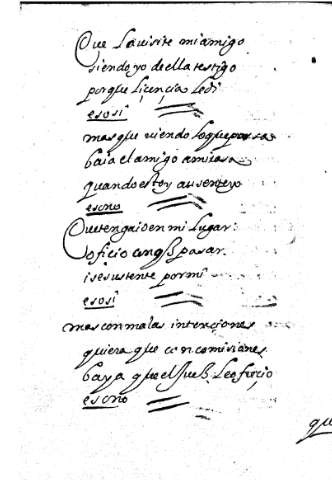 Que la visite mi amigo
siendo yo de ella testigo
porque licencia le di
eso si
mas que viendo lo que pasa
baia el amigo a mi casa
quando estoy ausente yo
eso no
Que tenga io en mi lugar
oficio con q pasar
i se sustente por mi
eso si
mas con malas intenciones
quiera que con comisiones
baya que el Jues Le ofrecio
eso no